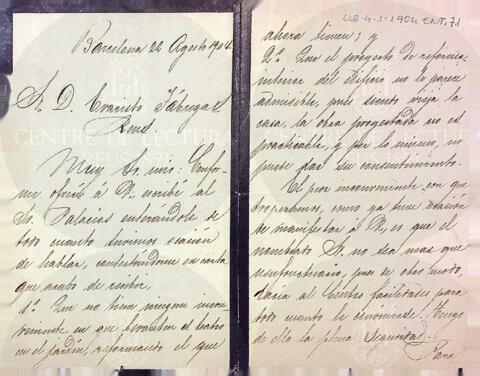 CLR-4-1-1904 ENT. 71
Barcelona 22 Agosto 1904.
S. D. Evaristo Fábregas
Reus
Muy Sr. mio: Confor-
me ofrecí á V. escribí al
Sr. Palacios enterándole de
todo cuanto tuvimos ocasión
de hablar, contestándome en carta
que acabo de recibir.
1º. Que no tiene ningun incon-
veniente en que levanten el teatro
en el jardín, reformando el que
ahora tienen; y
2º. Que el proyecto de reforma
interior del edificio no lo parece
admisible, pues siendo vieja la
casa, la obra proyectada no es
practicable, y por lo mismo, no
puede dar su consentimiento.
El peor inconveniente con que
tropezamos, como ya tuve ocasión
de manifestar á V., es que el
nombrado Sr. no sea mas que
usufructuario, pues de otro modo,
daría al Centro facilidades para
todo cuanto le conviniese. Tengo
de ello la plena seguridad.
Para
CENTRE DE LECTURA
REUS 1859